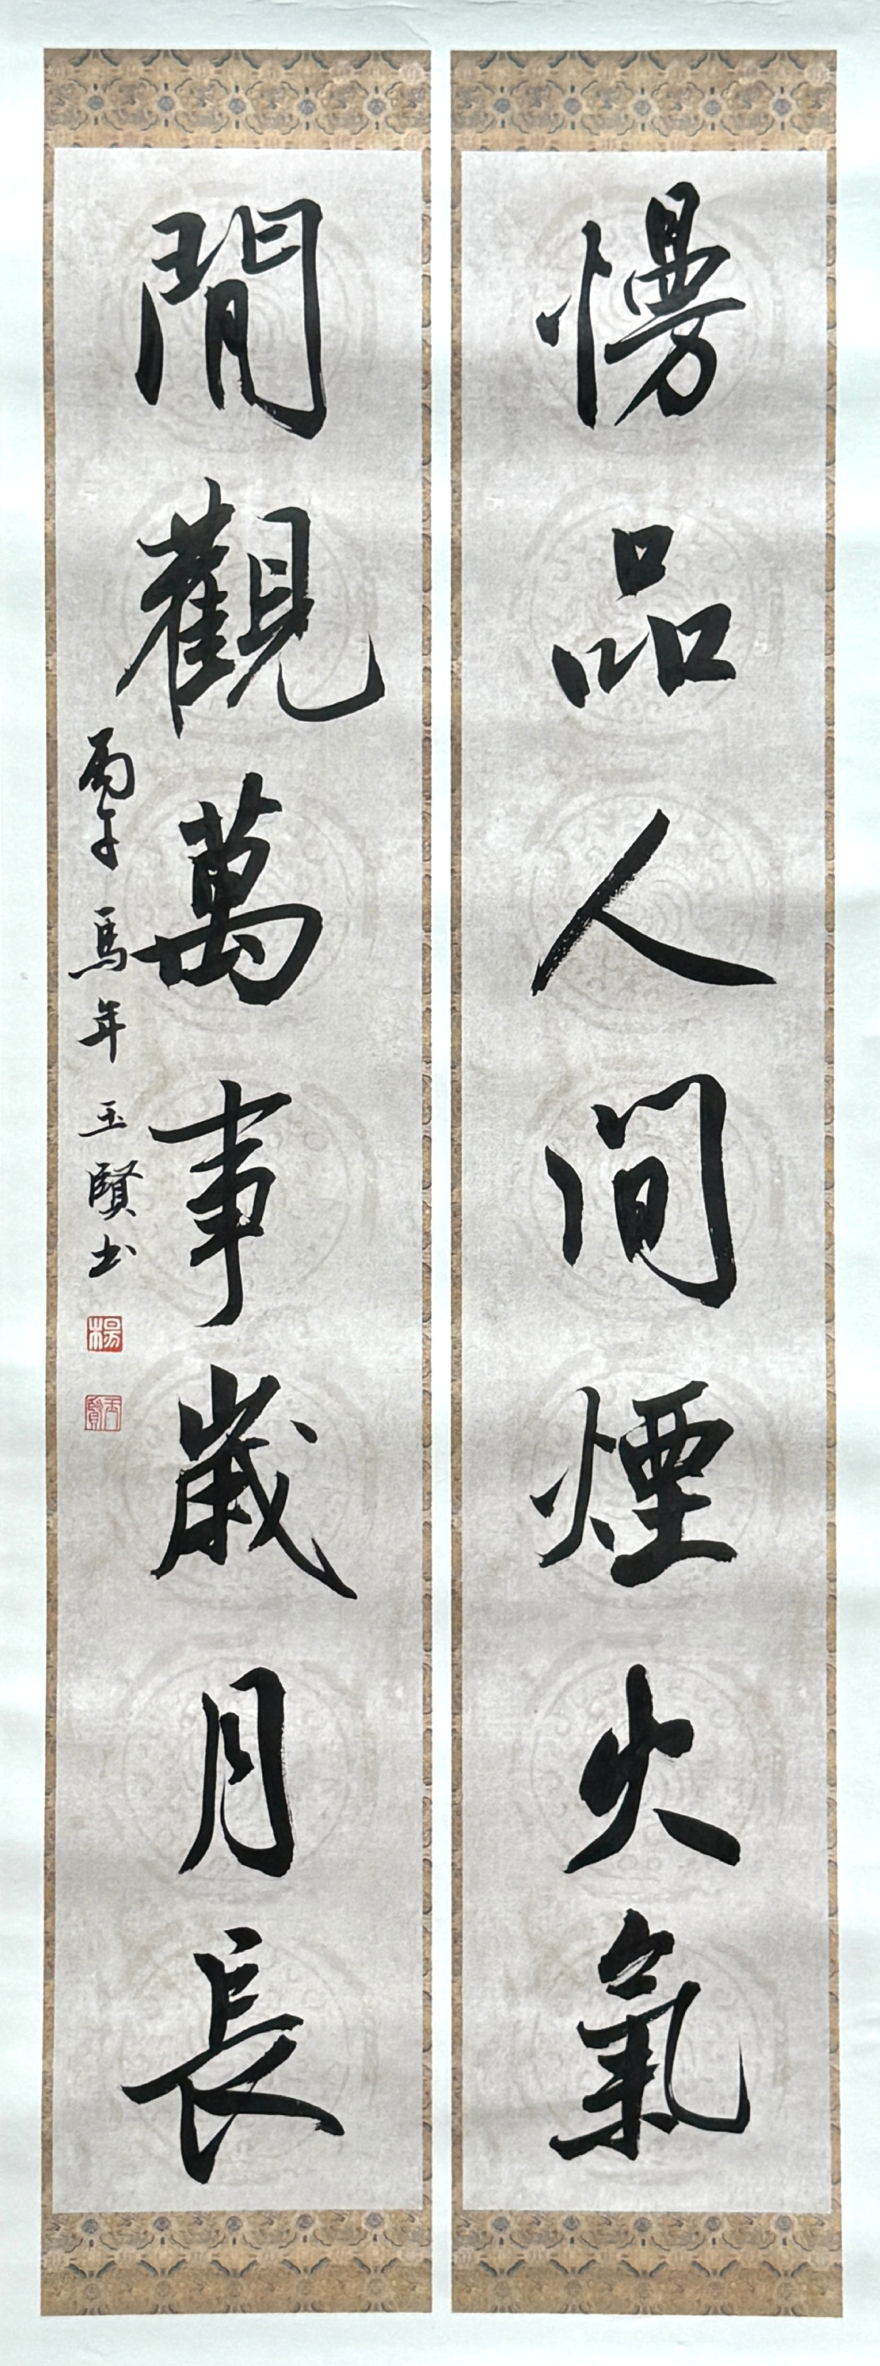 慢品人间煙火氣
閒觀萬事歲月長
丙午馬年玉賢书
楊
玉賢